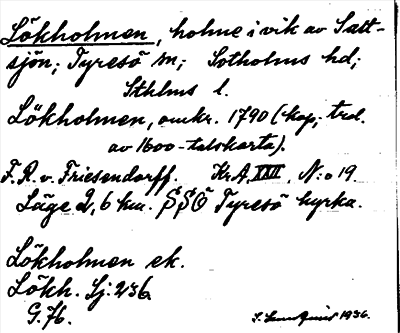 Lökholmen, holme i vik av Salt-
sjön; Tyresö sn; Sotholms hd;
Sthlms l.
Lökholmen, omkr. 1790 (kop; trol.
av 1600-talskarta).
F. R. v. Friesendorff. KrA, XXII, N:o 19.
Läge 2,6 km. SSÖ Tyresö kyrka.
Lökholmen ek.
Lökh. Sj: 236.
G. 76.
1936.